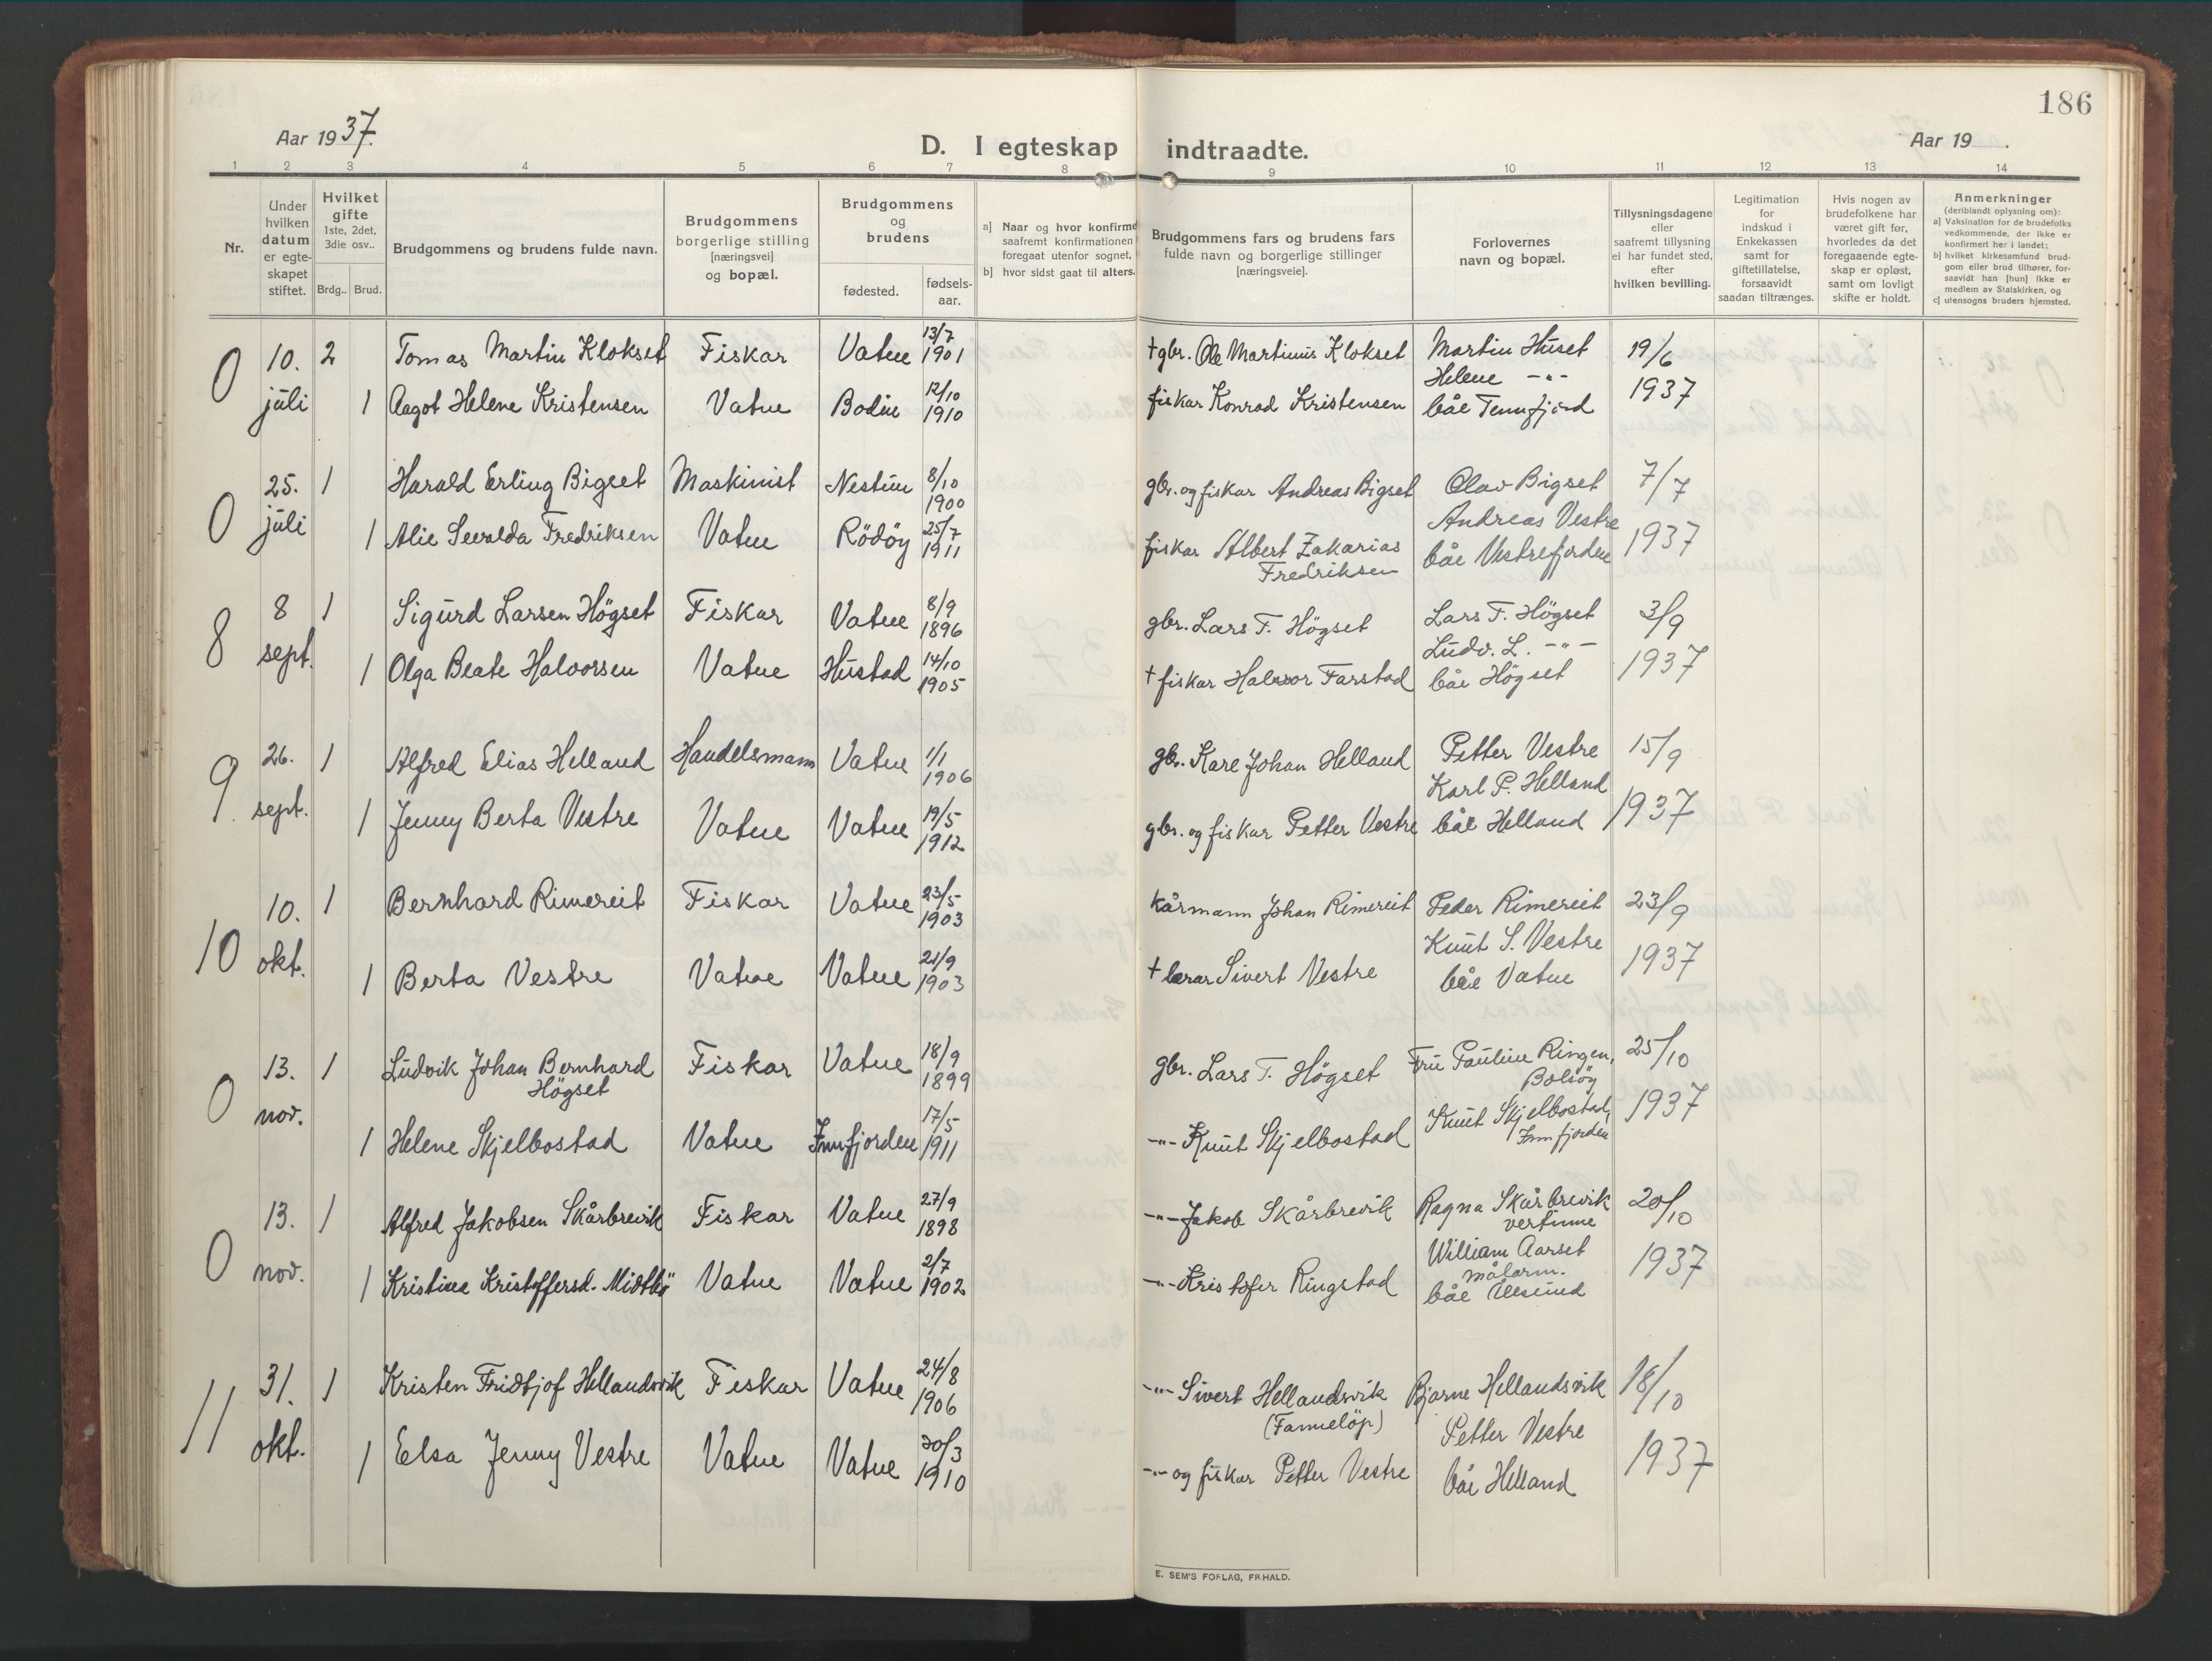 186
Aar 1937.
D. I egteskap indtraadte.
Aar 19 .
1 2 3 4 5 6 7 8 9 10 11 12 13 14
Nr.
Under hvilken datum er egte-skapet stiftet.
Hvilket gifte 1ste, 2det, 3die osv..
Brdg.. Brud.
Brudgommens og brudens fulde navn.
Brudgommens borgerlige stilling [næringsvei] og bopæl.
Brudgommens og brudens
fødested. fødsels-aar.
a] Naar og hvor konfirme
saafremt konfirmationen
foregaat utenfor sognet,
b] hvor sidst gaat til alters.
Brudgommens fars og brudens fars
fulde navn og borgerlige stillinger
[næringsveie].
Forlovernes
navn og bopæl.
Tillysningsdagene
eller
saafremt tillysning
ei har fundet sted,
efter
hvilken bevilling.
Legitimation
for
indskud i
Enkekassen
samt for
giftetillatelse,
forsaavidt
saadan tiltrænges.
Hvis nogen av
brudefolkene har
været gift før,
hvorledes da det
foregaaende egte-
skap er opløst,
samt om lovligt
skifte er holdt.
Anmerkninger
(deriblandt oplysning om):
a] Vaksination for de brudefolks
vedkommende, der ikke er
konfirmert her i landet;
b] hvilket kirkesamfund brud-
gom eller brud tilhører, for-
saavidt han [hun] ikke er
medlem av Statskirken, og
c] utensogns bruders hjemsted.
0 10. juli 2 Tomas Martin Klokset Fiskar Vatne 13/7 1901 † gbr. Ole Martinus Klokset Martin Huset 19/6
Helene -"-
1 Aagot Helene Kristensen Vatne Bodin 12/10 1910 fiskar Konrad Kristensen båe Tennfjord 1937
0 25. juli 1 Harald Erling Bigset Maskinist Nestun 8/10 1900 gbr. og fiskar Andreas Bigset Olav Bigset 7/7
Andreas Vestre
1 Alie Sevalda Fredriksen Vatne Rödöy 25/7 1911 fiskar Albert Zakarias Fredriksen båe Vestrefjorden 1937
8 8 sept. 1 Sigurd Larsen Högset Fiskar Vatne 8/9 1896 gbr. Lars T. Högset Lars T. Högset 3/9
Ludv. L. -"-
1 Olga Beate Halvorsen Vatne Hustad 14/10 1905 † fiskar Halvor Farstad båe Högset 1937
9. 26. sept. 1 Alfred Elias Helland Handelsmann Vatne 1/1 1906 gbr. Kare Johan Helland Petter Vestre 15/9
Karl P. Helland
1 Jenny Berta Vestre Vatne Vatne 19/5 1912 gbr. og fiskar Petter Vestre båe Helland 1937
10 10. okt. 1 Bernhard Rimereit Fiskar Vatne 23/5 1903 kårmann Johan Rimereit Peder Rimereit 23/9
Knut S. Vestre
1 Berta Vestre Vatne Vatne 21/9 1903 † lærar Sivert Vestre båe Vatne 1937
0 13. nov. 1 Ludvik Johan Bernhard Högset Fiskar Vatne 18/9 1899 gbr. Lars T. Högset Fru Pauline Ringen, Bolsöy 25/10
1 Helene Skjelbostad Vatne Innfjorden 17/5 1911 -"- Knut Skjelbostad Knut Skjelbostad, Innfjorden 1937
0 13. nov. 1 Alfred Jakobsen Skårbrevik Fiskar Vatne 27/9 1898 -"- Jakob Skårbrevik Ragna Skårbrevik vertinne 20/10
William Aarset målarm.
1 Kristine Kristoffersd. Midtbö Vatne Vatne 2/7 1902 -"- Kristofer Ringstad båe Ålesund 1937
11 31. okt. 1 Kristen Fridtjof Hellandsvik Fiskar Vatne 24/8 1906 -"- Sivert Hellandsvik (Fannelöp) Bjarne Hellandsvik 18/10
Petter Vestre
1 Elsa Jenny Vestre Vatne Vatne 20/3 1910 -"- og fiskar Petter Vestre båe Helland 1937
E. SEM'S FORLAG, FR.HALD.